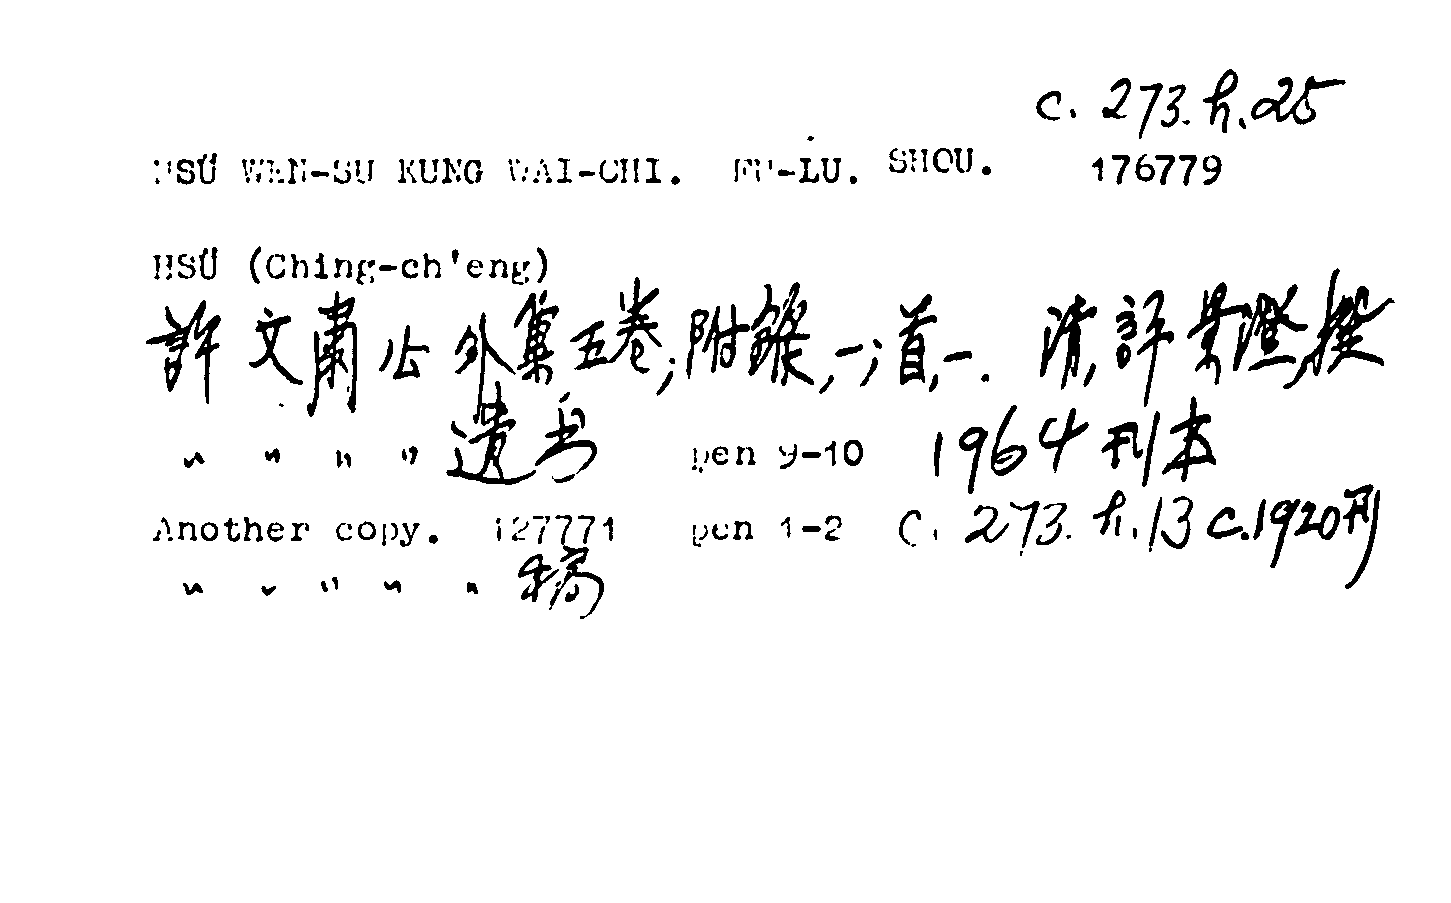 c. 273.h.25
HSÜ WEN-SU KUNG WAI-CHI. FU-LU. SHOU. 176779
HSÜ (Ching-ch'eng)
許文肅公外集五卷;附錄,一;首,一. 清,許景澄,撰
" " " " 遺书 pen 9-10 1964刊本
Another copy. 127771 pen 1-2 C. 273. h.13 c.1920刊
" " " " " 稿